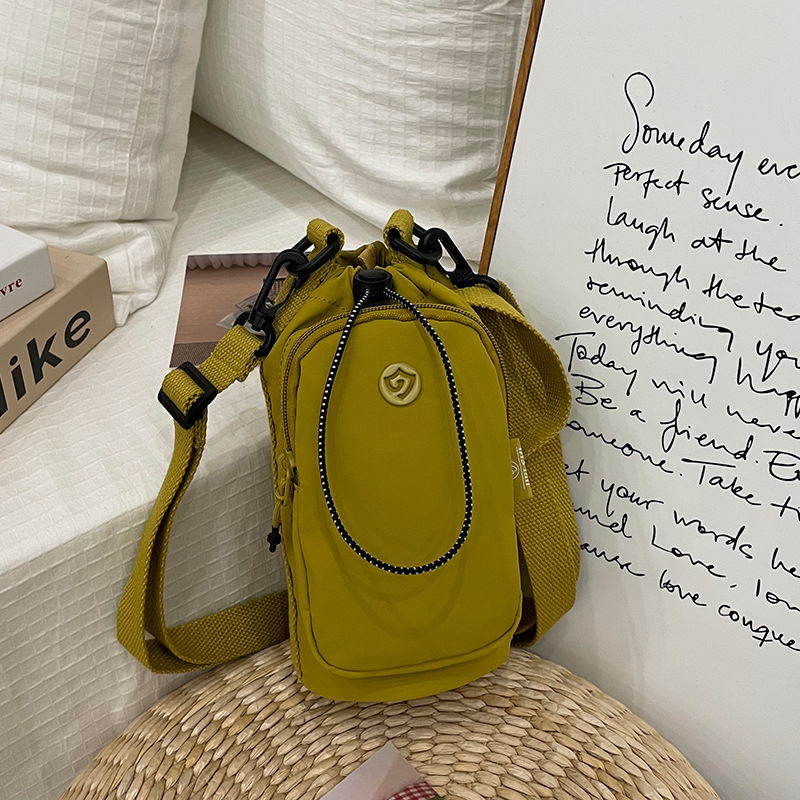 Someday eve
perfect sense.
laugh at the
through the tea
reminding you
everything happ
Today will never
Be a friend. En
omeone. Take ti
et your words he
und Love, lov
ause love conque
vre
like